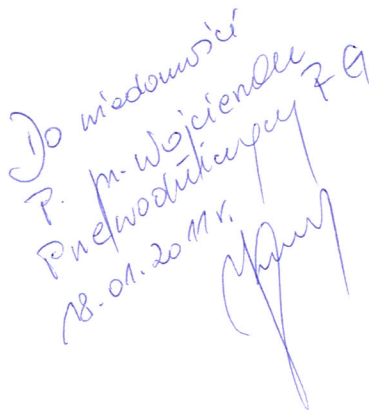 Do wiadomości
P. M. Wojciechow
Przewodniczący Z G
18.01.2011 r.